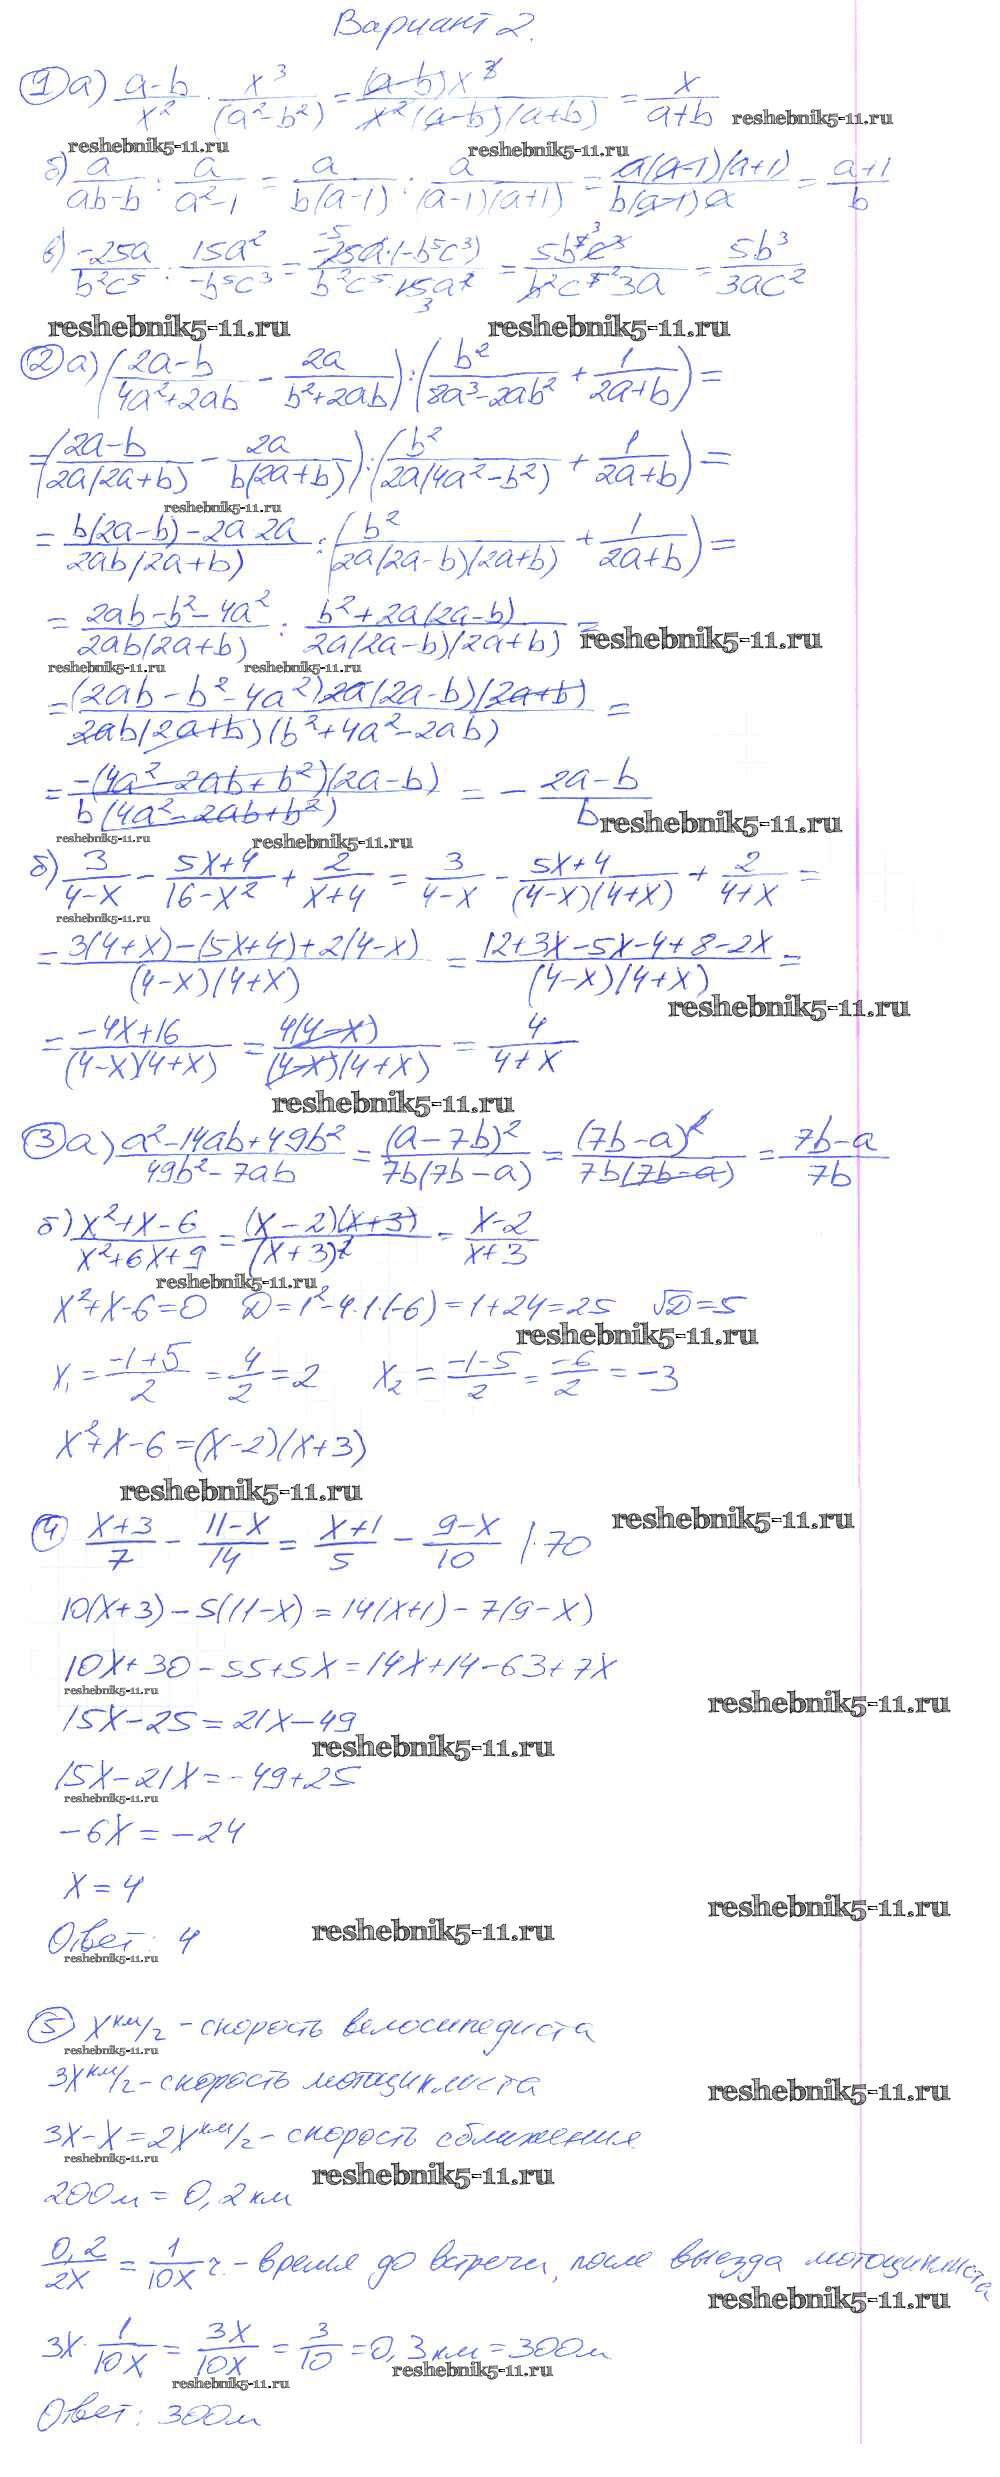 Вариант 2.
1 а) (a-b)/x² · x³/(a²-b²) = (a-b)x³/(x²(a-b)(a+b)) = x/(a+b)
reshebnik5-11.ru
reshebnik5-11.ru reshebnik5-11.ru
б) a/(ab-b) : a/(a²-1) = a/(b(a-1)) : a/((a-1)(a+1)) = a(a-1)(a+1)/(b(a-1)a) = (a+1)/b
в) -25a/(b²c⁵) : 15a²/(-b⁵c³) = -25a·(-b⁵c³)/(b²c⁵·15a²) = 5b⁵c³/(b²c⁵3a) = 5b³/(3ac²)
reshebnik5-11.ru reshebnik5-11.ru
2 а) ((2a-b)/(4a²+2ab) - 2a/(b²+2ab)) : (b²/(8a³-2ab²) + 1/(2a+b)) =
= ((2a-b)/(2a(2a+b)) - 2a/(b(2a+b))) : (b²/(2a(4a²-b²)) + 1/(2a+b)) =
reshebnik5-11.ru
= (b(2a-b)-2a·2a)/(2ab(2a+b)) : (b²/(2a(2a-b)(2a+b)) + 1/(2a+b)) =
= (2ab-b²-4a²)/(2ab(2a+b)) : (b²+2a(2a-b))/(2a(2a-b)(2a+b)) =
reshebnik5-11.ru
reshebnik5-11.ru reshebnik5-11.ru
= (2ab-b²-4a²)2a(2a-b)(2a+b)/(2ab(2a+b)(b²+4a²-2ab)) =
= -(4a²-2ab+b²)(2a-b)/(b(4a²-2ab+b²)) = -(2a-b)/b
reshebnik5-11.ru
reshebnik5-11.ru reshebnik5-11.ru
б) 3/(4-x) - (5x+4)/(16-x²) + 2/(x+4) = 3/(4-x) - (5x+4)/((4-x)(4+x)) + 2/(4+x) =
reshebnik5-11.ru
= (3(4+x)-(5x+4)+2(4-x))/((4-x)(4+x)) = (12+3x-5x-4+8-2x)/((4-x)(4+x)) =
reshebnik5-11.ru
= (-4x+16)/((4-x)(4+x)) = 4(4-x)/((4-x)(4+x)) = 4/(4+x)
reshebnik5-11.ru
3 а) (a²-14ab+49b²)/(49b²-7ab) = (a-7b)²/(7b(7b-a)) = (7b-a)²/(7b(7b-a)) = (7b-a)/7b
б) (x²+x-6)/(x²+6x+9) = (x-2)(x+3)/(x+3)² = (x-2)/(x+3)
reshebnik5-11.ru
x²+x-6=0 D=1²-4·1·(-6)=1+24=25 √D=5
reshebnik5-11.ru
x₁ = (-1+5)/2 = 4/2 = 2 x₂ = (-1-5)/2 = -6/2 = -3
x²+x-6=(x-2)(x+3)
reshebnik5-11.ru
4 (x+3)/7 - (11-x)/14 = (x+1)/5 - (9-x)/10 |·70
reshebnik5-11.ru
10(x+3)-5(11-x)=14(x+1)-7(9-x)
10x+30-55+5x=14x+14-63+7x
reshebnik5-11.ru
reshebnik5-11.ru
15x-25=21x-49
reshebnik5-11.ru
15x-21x=-49+25
reshebnik5-11.ru
-6x=-24
x=4
reshebnik5-11.ru
Ответ: 4
reshebnik5-11.ru
reshebnik5-11.ru
5 x км/г - скорость велосипедиста
reshebnik5-11.ru
3x км/г - скорость мотоциклиста
reshebnik5-11.ru
3x-x=2x км/г - скорость сближения
reshebnik5-11.ru
reshebnik5-11.ru
200м=0,2км
0,2/2x = 1/10x ч. - время до встречи, после выезда мотоциклиста
reshebnik5-11.ru
3x·1/10x = 3x/10x = 3/10 = 0,3км=300м
reshebnik5-11.ru
reshebnik5-11.ru
Ответ: 300м